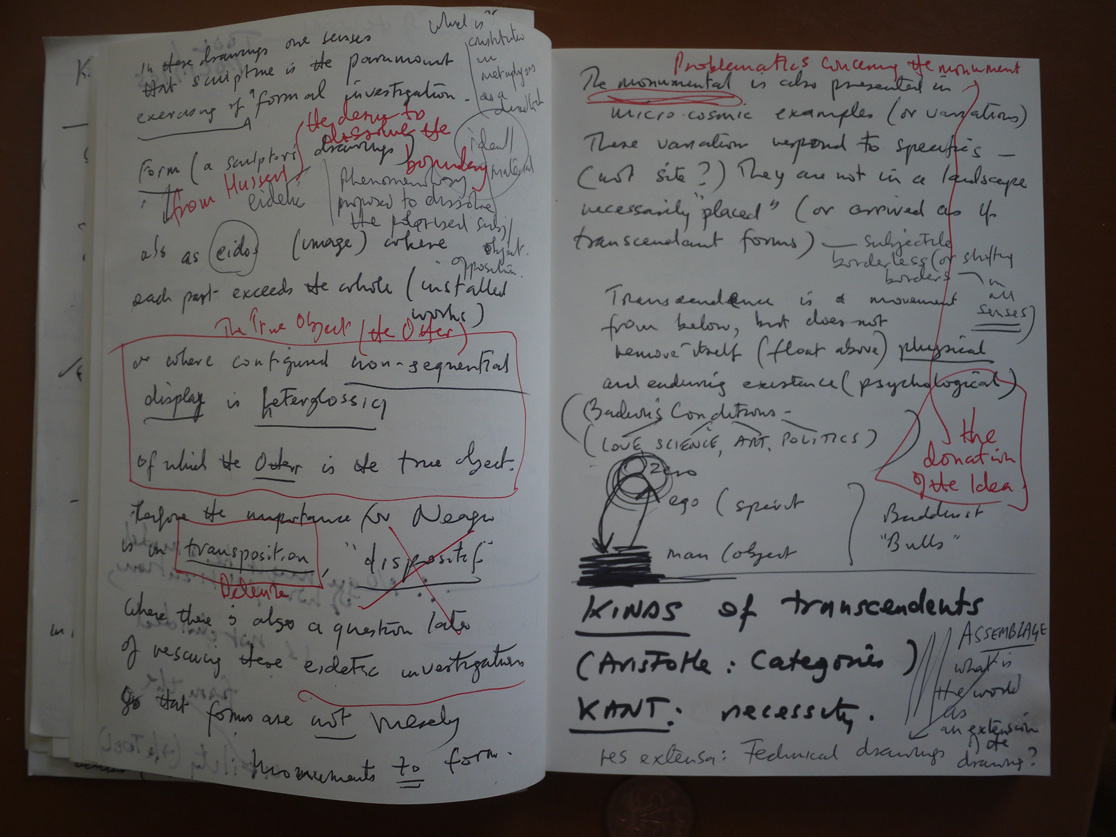 In these drawings one senses
that sculpture is the paramount
exercising of "formal investigation.
What is
constituted
in
metaphysics
as a
ideal/
material
the desire to
dissolve the
boundary
Form (a sculptor's drawings)
from Husserl
eidetic
Phenomenology
proposed to dissolve
the polarised subj/
object
opposition.
als as eidos (image) where
each part exceeds the whole (installed
works)
The True Object (the Other)
or where configured non-sequential
display is heteroglossic
of which the Other is the true object.
Therefore the importance for Neagu
is in transposition, "dispositif"
Deleuze
Where there is also a question later
of rescuing these eidetic investigations
so that forms are not merely
monuments to form.
Problematics concerning the monument
The monumental is also presented in
micro-cosmic examples (or variations)
These variation respond to specifics –
(not site?) They are not in a landscape
necessarily "placed" (or arrived as if
transcendant forms) – subjectile
borderless (or shifting
borders – in
all
senses)
Transcendence is a movement
from below, but does not
remove itself (float above) physical
and enduring existence (psychological)
(Badiou's Conditions –
(LOVE, SCIENCE, ART, POLITICS)
the
donation
of the Idea
zero
ego (spirit
man (object
Buddhist
"Bulls"
KINDS of transcendents
(Aristotle: Categories)
KANT: necessity.
ASSEMBLAGE
what is
the world
as
an extension
of the
drawing?
res extensa: Technical drawings